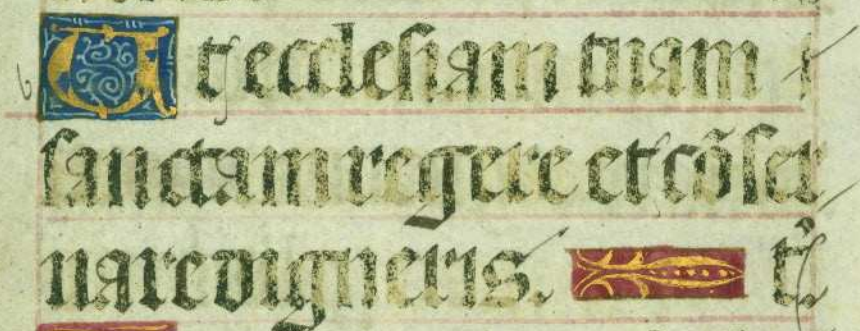 Ut ecclesiam tuam
sanctam regere et cõser
uare digneris. t̃